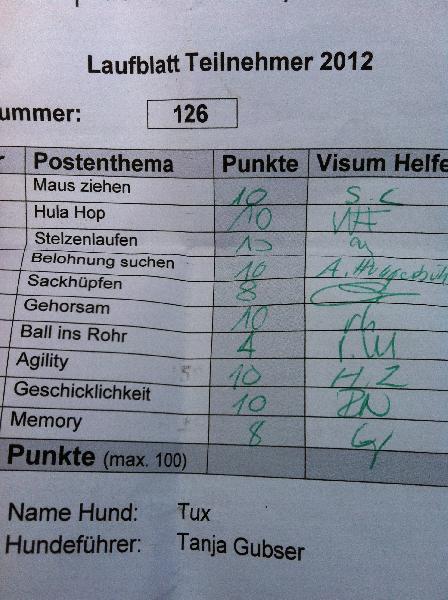 Laufblatt Teilnehmer 2012
ummer: 126
r Postenthema Punkte Visum Helfe
Maus ziehen 10 S.C
Hula Hop 10
Stelzenlaufen 10
Belohnung suchen 10 A.
Sackhüpfen 8
Gehorsam 10
Ball ins Rohr 4
Agility 10 H.Z
Geschicklichkeit 10
Memory 8
Punkte (max. 100)
Name Hund: Tux
Hundeführer: Tanja Gubser